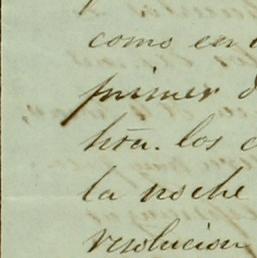 como en
primer d
htra. los c
la noche
resolucion